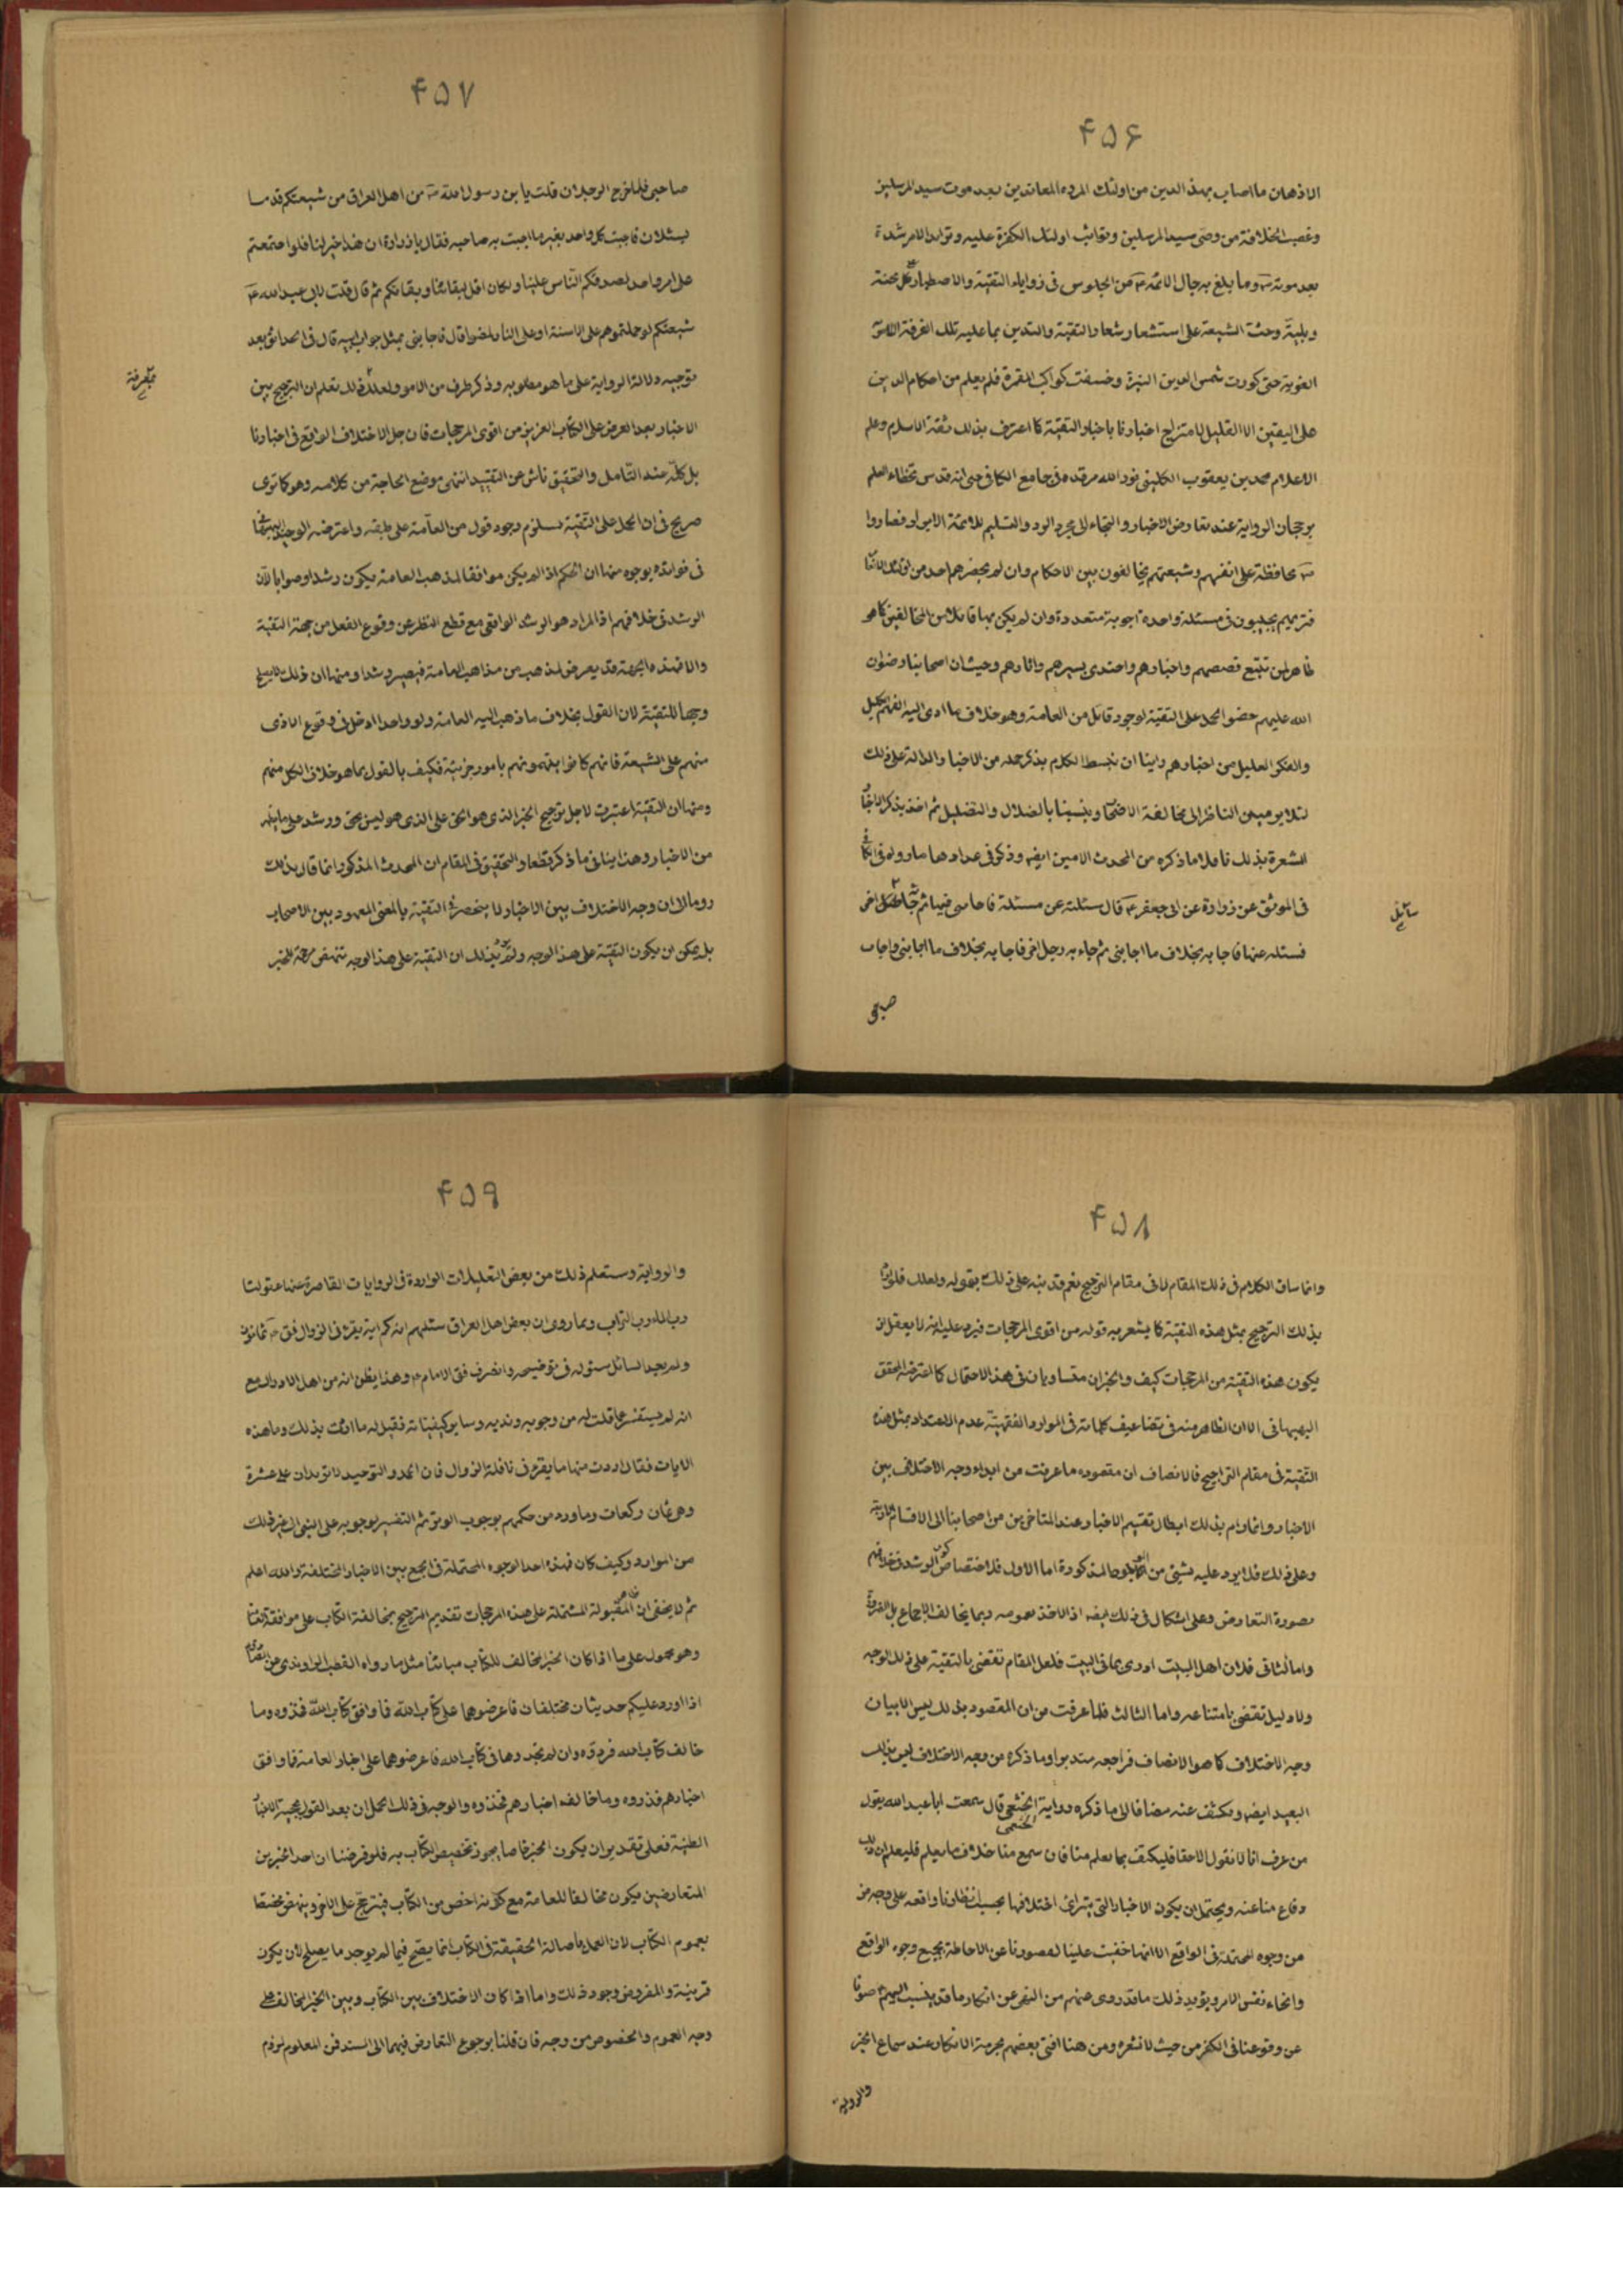 ۴۵۶
الاذهان ما اصاب بهذا الدين من اولئك المردة المعاندين بعد موت سيد المرسلين
وغصب الخلافة من وصى سيد المرسلين وتواثب اولئك الكفرة عليه وتزايد الامر شدة
بعد موته ص وما بلغ به حال الائمة ع من الجلوس فى زوايا التقية والاصطبار على كل محنة
وبلية وحث الشيعة على استشعار شعار التقية والتدين بما عليه تلك الفرقة
الغوية حتى كورت شمس الدين النيرة وخسفت كواكبه المقمرة فلم يعلم من احكام الدين
على اليقين الا القليل لامتزاج اخبارنا باخبار التقية كما اعترف بذلك ثقة الاسلام وعلم
الاعلام محمد بن يعقوب الكلينى نور الله مرقده فى جامع الكافى حتى انه قدس تخطاء العلم
برجحان الرواية عند تعارض الاخبار والتجاء الى مجرد الرد والتسليم للائمة الابرار فصاروا
ص محافظة على انفسهم وشيعتهم يخالفون بين الاحكام وان لم يحضرهم احد من اولئك الانام
فتريهم يجيبون فى مسئلة واحدة اجوبة متعددة وان لم يكن بها قائل من المخالفين كما هو
ظاهر لمن تتبع قصصهم واخبارهم واحتدى سيرهم واثارهم وحيث ان اصحابنا رضوان
الله عليهم خصوا الحمل على التقية لوجود قائل من العامة وهو خلاف ما ادى اليه الفهم الكليل
والفكر العليل من اخبارهم راينا ان نبسط الكلام بذكر جملة من الاخبار الدالة على ذلك
لئلا يوميهن الناظر الى مخالفة الاصحاب وينسبنا بالضلال والتضليل ثم اخذ بذكر الاخبار
المشعرة بذلك ناقلا ما ذكره من المحدث الامين ايضه وذكر فى عدادها ما رواه فى الكافى
فى الموثق عن زرارة عن ابى جعفر ع قال سئلته عن مسئلة فاجابنى فيها ثم جائه رجل اخر
سائل
فسئله عنها فاجابه بخلاف ما اجابنى ثم جاء به رجل اخر فاجابه بخلاف ما اجابنى واجاب
صاحبى
۴۵۷
صاحبى فلما خرج الرجلان قلت يا بن رسول الله ص من اهل العراق من شيعتكم قدما
يسئلان فاجبت كل واحد بغير ما اجبت به صاحبه فقال يا زرارة ان هذا خير لنا فلو اجتمعتم
على امر واحد لصدقكم الناس علينا ولكان اقل لبقائنا وبقائكم ثم قال قلت لابى عبد الله ع
شيعتكم لو حملتموهم على الاسنة او على النار لمضوا قال فاجابنى بمثل جواب ابيه قال فى الحدائق بعد
توجيه دلالة الرواية على ما هو مطلوبه وذكر طرف من الامور ولعلك بذلك تعلم ان الترجيح بين
بمعرفة
الاخبار بعد العرض على الكتاب العزيز من اقوى المرجحات فان جل الاختلاف الواقع فى اخبارنا
بل كله عند التامل والتحقيق ناش عن التقية انتهى موضع الحاجة من كلامه وهو كما ترى
صريح فى ان الحمل على التقية لا يستلزم وجود قول من العامة على طبقه واعترضه الوحيد البهبهانى
فى فوائده بوجوه منها ان الحكم اذا لم يكن موافقا لمذهب العامة يكون رشدا وصوابا لان
الرشد فى خلافهم اذ المراد هو الرشد الواقعى مع قطع النظر عن وقوع الفعل من جهة التقية
والا فهذه الجهة قد يعرض لمذهب من مذاهب العامة فيصير رشدا ومنها ان ذلك لا يصلح
وجها للتقية لان القول بخلاف ما ذهب اليه العامة ولو واحدا ادخل فى وقوع الاذى
منهم على الشيعة فانهم كانوا يتهمونهم بامور جزئية فكيف بالقول بما هو خلاف الكل منهم
ومنها ان التقية اعتبرت لاجل ترجيح الخبر الذى هو الحق على الذى هو ليس بحق ورشد على ما يظهر
من الاخبار وهذا ينافى ما ذكر قطعا والتحقيق فى المقام ان المحدث المذكور انما قال بذلك
روما لان وجه الاختلاف بين الاخبار لا ينحصر فى التقية بالمعنى المعهود بين الاصحاب
بل يمكن ان يكون التقية على هذا الوجه ولم يرد بذلك ان التقية على هذا الوجه تنهض مرجحة للخبر
۴۵۸
وانما ساق الكلام فى ذلك المقام لا فى مقام الترجيح نعم قد ينبه على ذلك بقوله ولعلك فلو
بذلك الترجيح بمثل هذه التقية كما يشعر به قوله من اقوى المرجحات فيرد عليه انه لا يعقل ان
يكون هذه التقية من المرجحات كيف والخبران متساويان فى هذا الاحتمال كما اعترضه المحقق
البهبهانى الا ان الظاهر منه فى تضاعيف كلماته فى الموارد الفقهية عدم الاعتداد بمثل هذه
التقية فى مقام التراجيح فالانصاف ان مقصوده ما عرفت من ابداء وجه الاختلاف بين
الاخبار وانما رام بذلك ابطال تقسيم الاخبار عند المتاخرين من اصحابنا الى الاقسام
وعلى ذلك فلا يرد عليه بشئى من الوجوه المذكورة اما الاول فلاختصاص كون الرشد فى خلافهم
بصورة التعارض وعلى اشكال فى ذلك ايضه اذ الاخذ بعمومه ربما يخالف الاجماع بل الضرورة
واما الثانى فلان اهل البيت ادرى بما فى البيت فلعل المقام تقضى بالتقية على ذلك الوجه
ولا دليل تقضى بامتناعه واما الثالث فلما عرفت من ان المقصود بذلك ليس الا بيان
وجه الاختلاف كما هو الانصاف فراجعه متدبرا وما ذكره من وجه الاختلاف ليس بذلك
البعيد ايضه ويكشف عنه مضافا الى ما ذكره رواية الخثعمى قال سمعت ابا عبد الله يقول
الخثعمى
من عرف انا لا نقول الا حقا فليكتف بما يعلم منا فان سمع منا خلاف ما يعلم فليعلم ان ذلك
دفاع منا عنه ويحتمل ان يكون الاخبار التى يترائى اختلافها بحسب انظارنا واقعه على وجه من
من وجوه المحتملة فى الواقع الا انها خفيت علينا لقصورنا عن الاحاطة بجميع وجوه الواقع
وانحاء نفس الامر ويؤيد ذلك ما قد روى عنهم من النهى عن انكار ما قد ينسب اليهم صونا
عن وقوعنا فى الكفر من حيث لا نشعر ومن هنا افتى بعضهم بحرمة الانكار عند سماع الخبر
والرواية
۴۵۹
والرواية وستعلم ذلك من بعض التعليلات الواردة فى الروايات القاصرة عنها عقولنا
رب الارباب وبما روى ان بعض اهل العراق سئلهم انه كم اية يقرء فى الزوال فق ع ثمانون
ولم يعد السائل سئوله فى توضيحه وانصرف فق الامام ع وهذا يظن انه من اهل الادراك مع
انه لم يستفسر عما قلت له من وجوبه وندبه وساير كيفياته فقيل له ما اردت بذلك وما هذه
الايات فقال اردت منها ما يقرء فى نافلة الزوال فان الحمد والتوحيد لا تزيدان على عشرة
وهى ثمان ركعات وما ورد من حكمهم بوجوب الوتر ثم التفسير بوجوبه على النبى الى غير ذلك
من الموارد وكيف كان فهذه احد الوجوه المحتملة فى الجمع بين الاخبار المختلفة والله اعلم
ثم لا يخفى ان ظاهر المقبولة المشتملة على هذه المرجحات تقديم الترجيح بمخالفة الكتاب على موافقة
وهو محمول على ما اذا كان الخبر المخالف للكتاب مباينا مثل ما رواه القطب الراوندى عن الصادق
اذا اورد عليكم حديثان مختلفان فاعرضوهما على كتاب الله فما وافق كتاب الله فخذوه وما
خالف كتاب الله فردوه وان لم تجدوهما فى كتاب الله فاعرضوهما على اخبار العامة فما وافق
اخبارهم فذروه وما خالف اخبارهم فخذوه والوجه فى ذلك الحمل ان بعد القول بحجية الاخبار
الظنية فعلى تقدير ان يكون الخبر خاصا يجوز تخصيص الكتاب به فلو فرضنا ان احد الخبرين
المتعارضين يكون مخالفا للعامة مع كونه اخص من الكتاب فيترجح على الاخر وينهض مخصصا
بعموم الكتاب لان العمل باصالة الحقيقة فى الكتاب انما يصح فيما لم يوجد ما يصلح لان يكون
قرينة والمفروض وجود ذلك واما اذا كان الاختلاف بين الكتاب وبين الخبر المخالف على
وجه العموم والخصوص من وجه فان قلنا برجوع التعارض فيهما الى السند فمن المعلوم لزوم